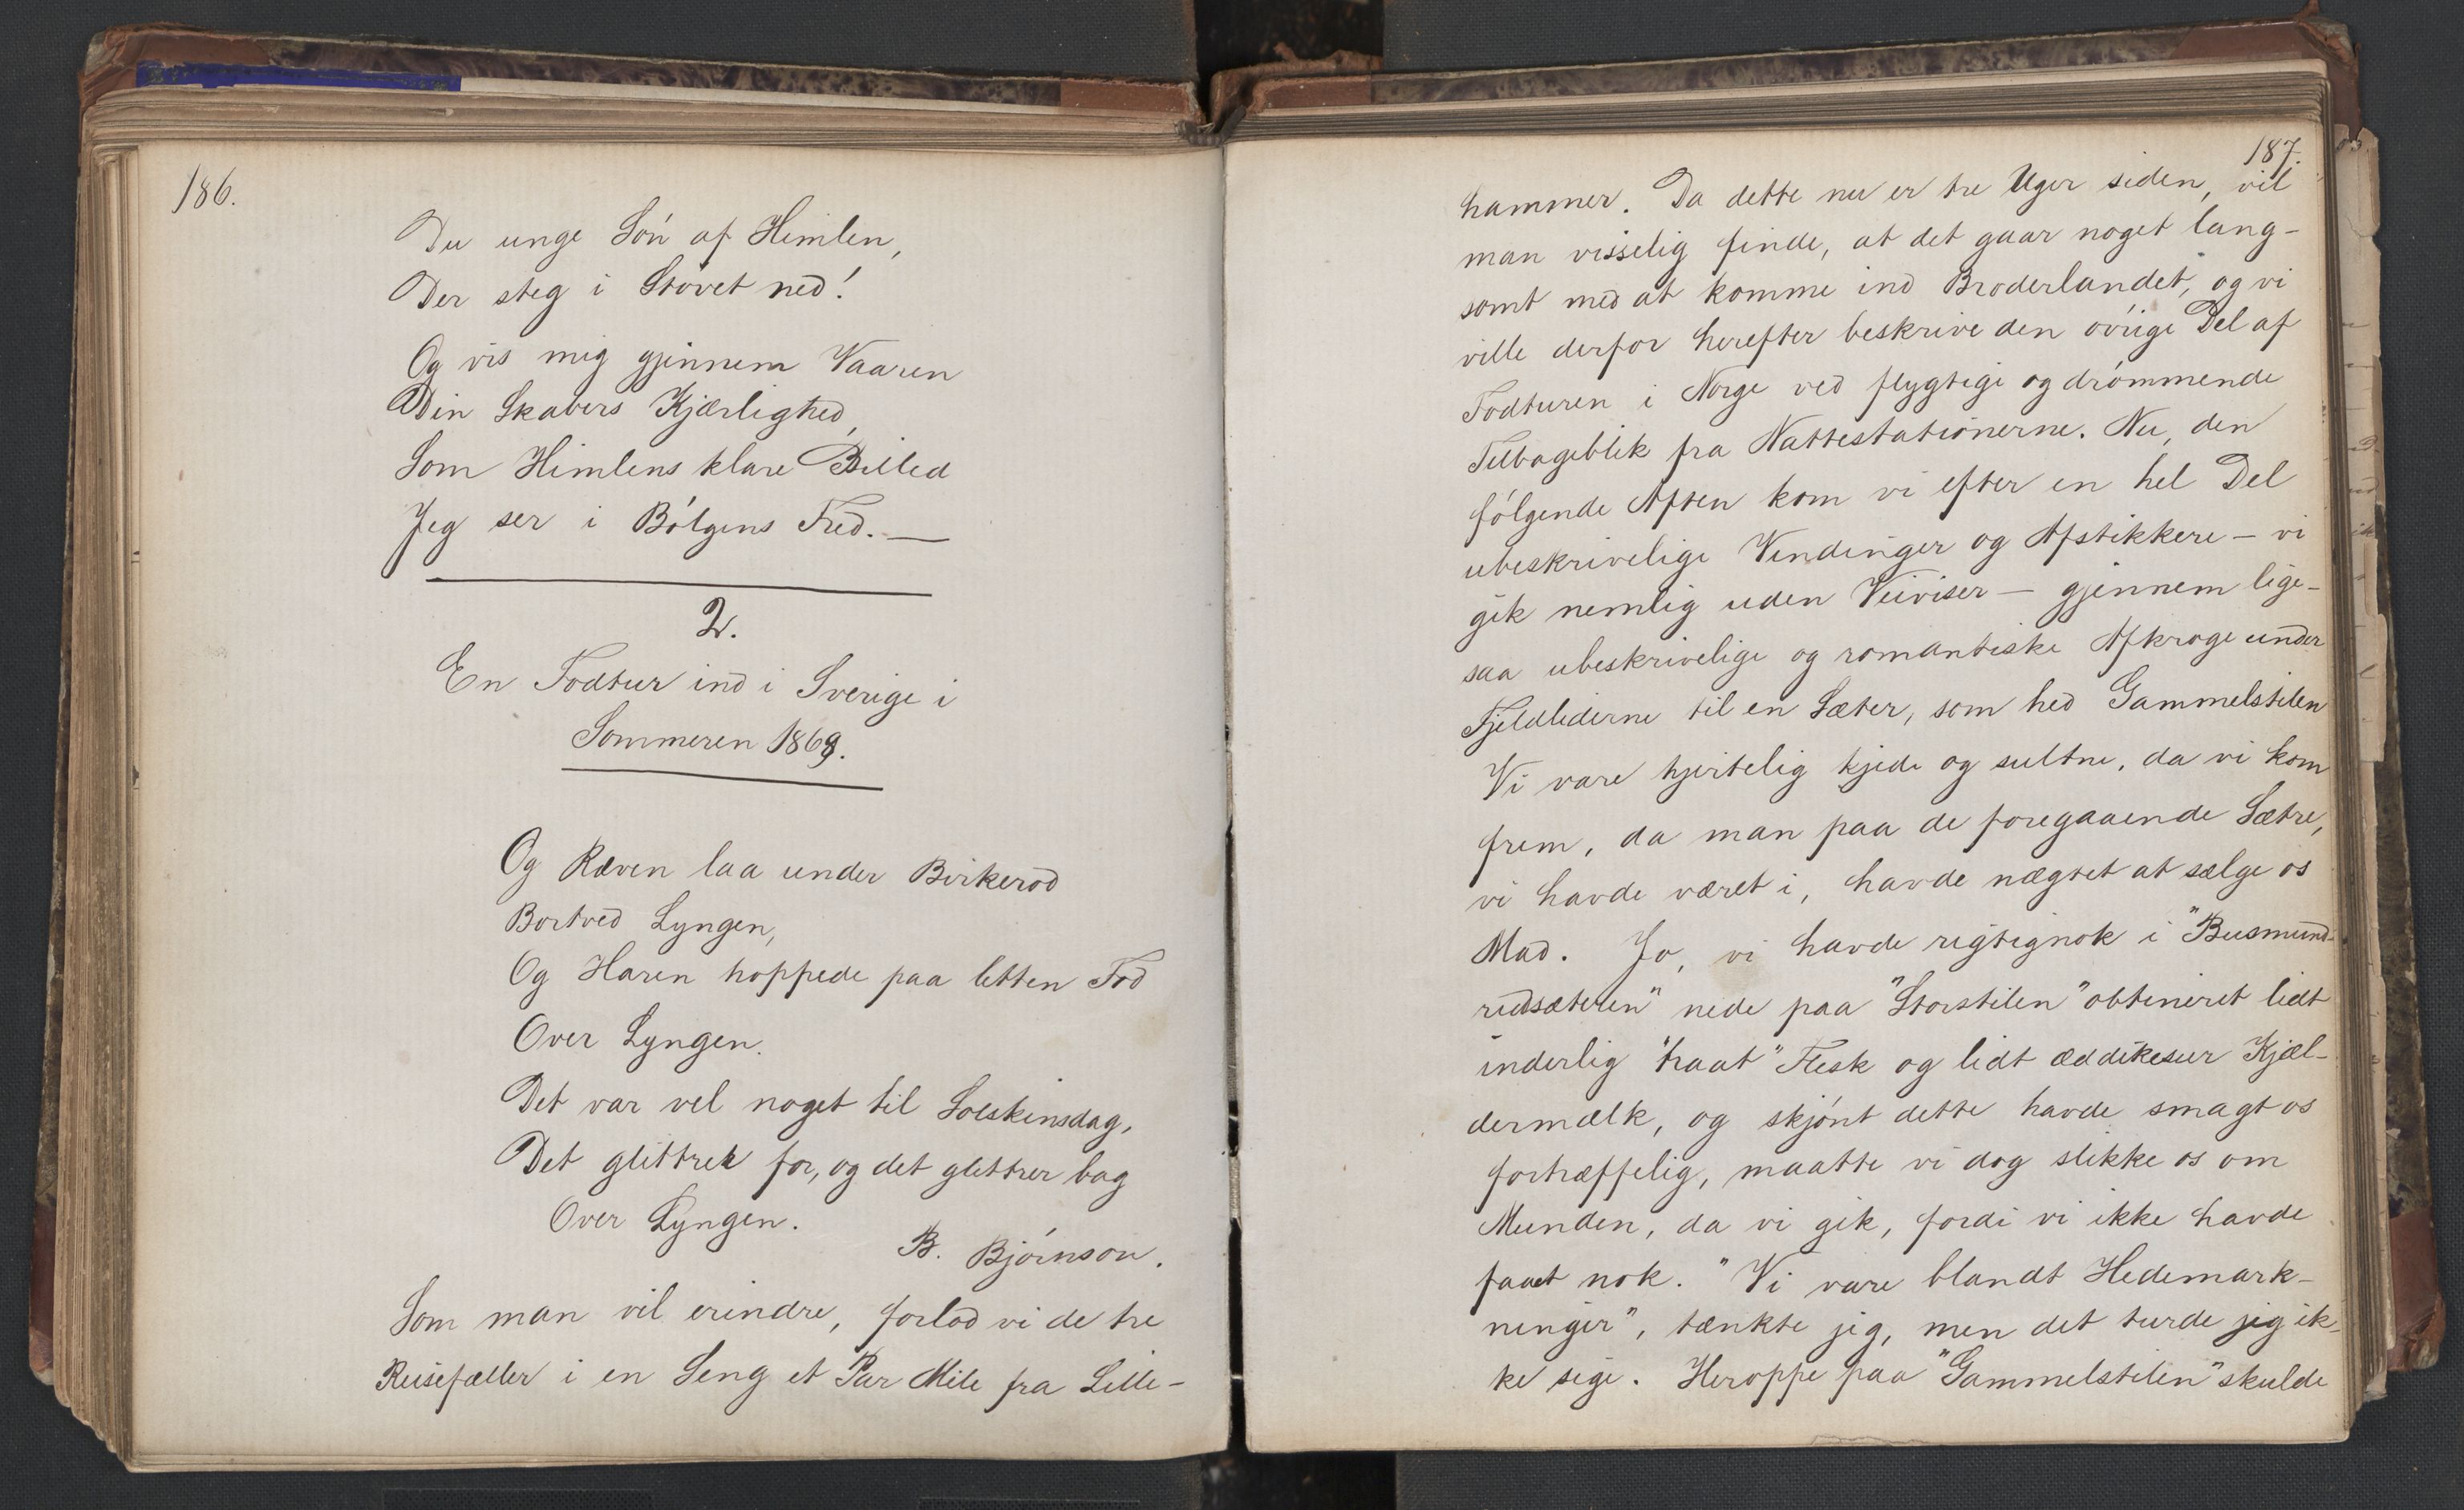 186.
Du unge Søn af Himlen,
Der steg i Støvet ned!
Og vis mig gjennem Vaaren
Din Skabers Kjærlighed,
Som Himlens klare Billed
Jeg ser i Bølgens Fred. —
2.
En Fodtur ind i Sverige i
Sommeren 1869.
Og Ræven laa under Birkerod
Bortved Lyngen,
Og Haren hoppede paa letten Fod
Over Lyngen.
Det var vel noget til Solskinsdag,
Det glittrer for, og det glittrer bag
Over Lyngen.
B. Bjørnson.
Som man vil erindre, forlod vi de tre
Reisefæller i en Seng et Par Mile fra Lille-
187.
hammer. Da dette nu er tre Uger siden, vil
man visselig finde, at det gaar noget lang-
somt med at komme ind Broderlandet, og vi
ville derfor herefter beskrive den øvrige Del af
Fodturen i Norge ved flygtige og drømmende
Tilbageblik fra Nattestationerne. Nu, den
følgende Aften kom vi efter en hel Del
ubeskrivelige Vendinger og Afstikkere — vi
gik nemlig uden Veiviser — gjennem lige-
saa ubeskrivelige og romantiske Afkroge under
Fjeldliderne til en Sæter, som hed Gammelstilen
Vi vare hjertelig kjede og sultne, da vi kom
frem, da man paa de foregaaende Sætre,
vi havde været i, havde nægtet at sælge os
Mad. Jo, vi havde rigtignok i "Busmund-
rudsæteren" nede paa "Storstilen" obtineret lidt
inderlig "traat" Flesk og lidt æddikesur Kjæl-
dermælk, og skjønt dette havde smagt os
fortræffelig, maatte vi dog slikke os om
Munden, da vi gik, fordi vi ikke havde
faaet nok. "Vi vare blandt Hedemark-
ninger", tænkte jeg, men det turde jeg ik-
ke sige. Heroppe paa "Gammelstilen" skulde